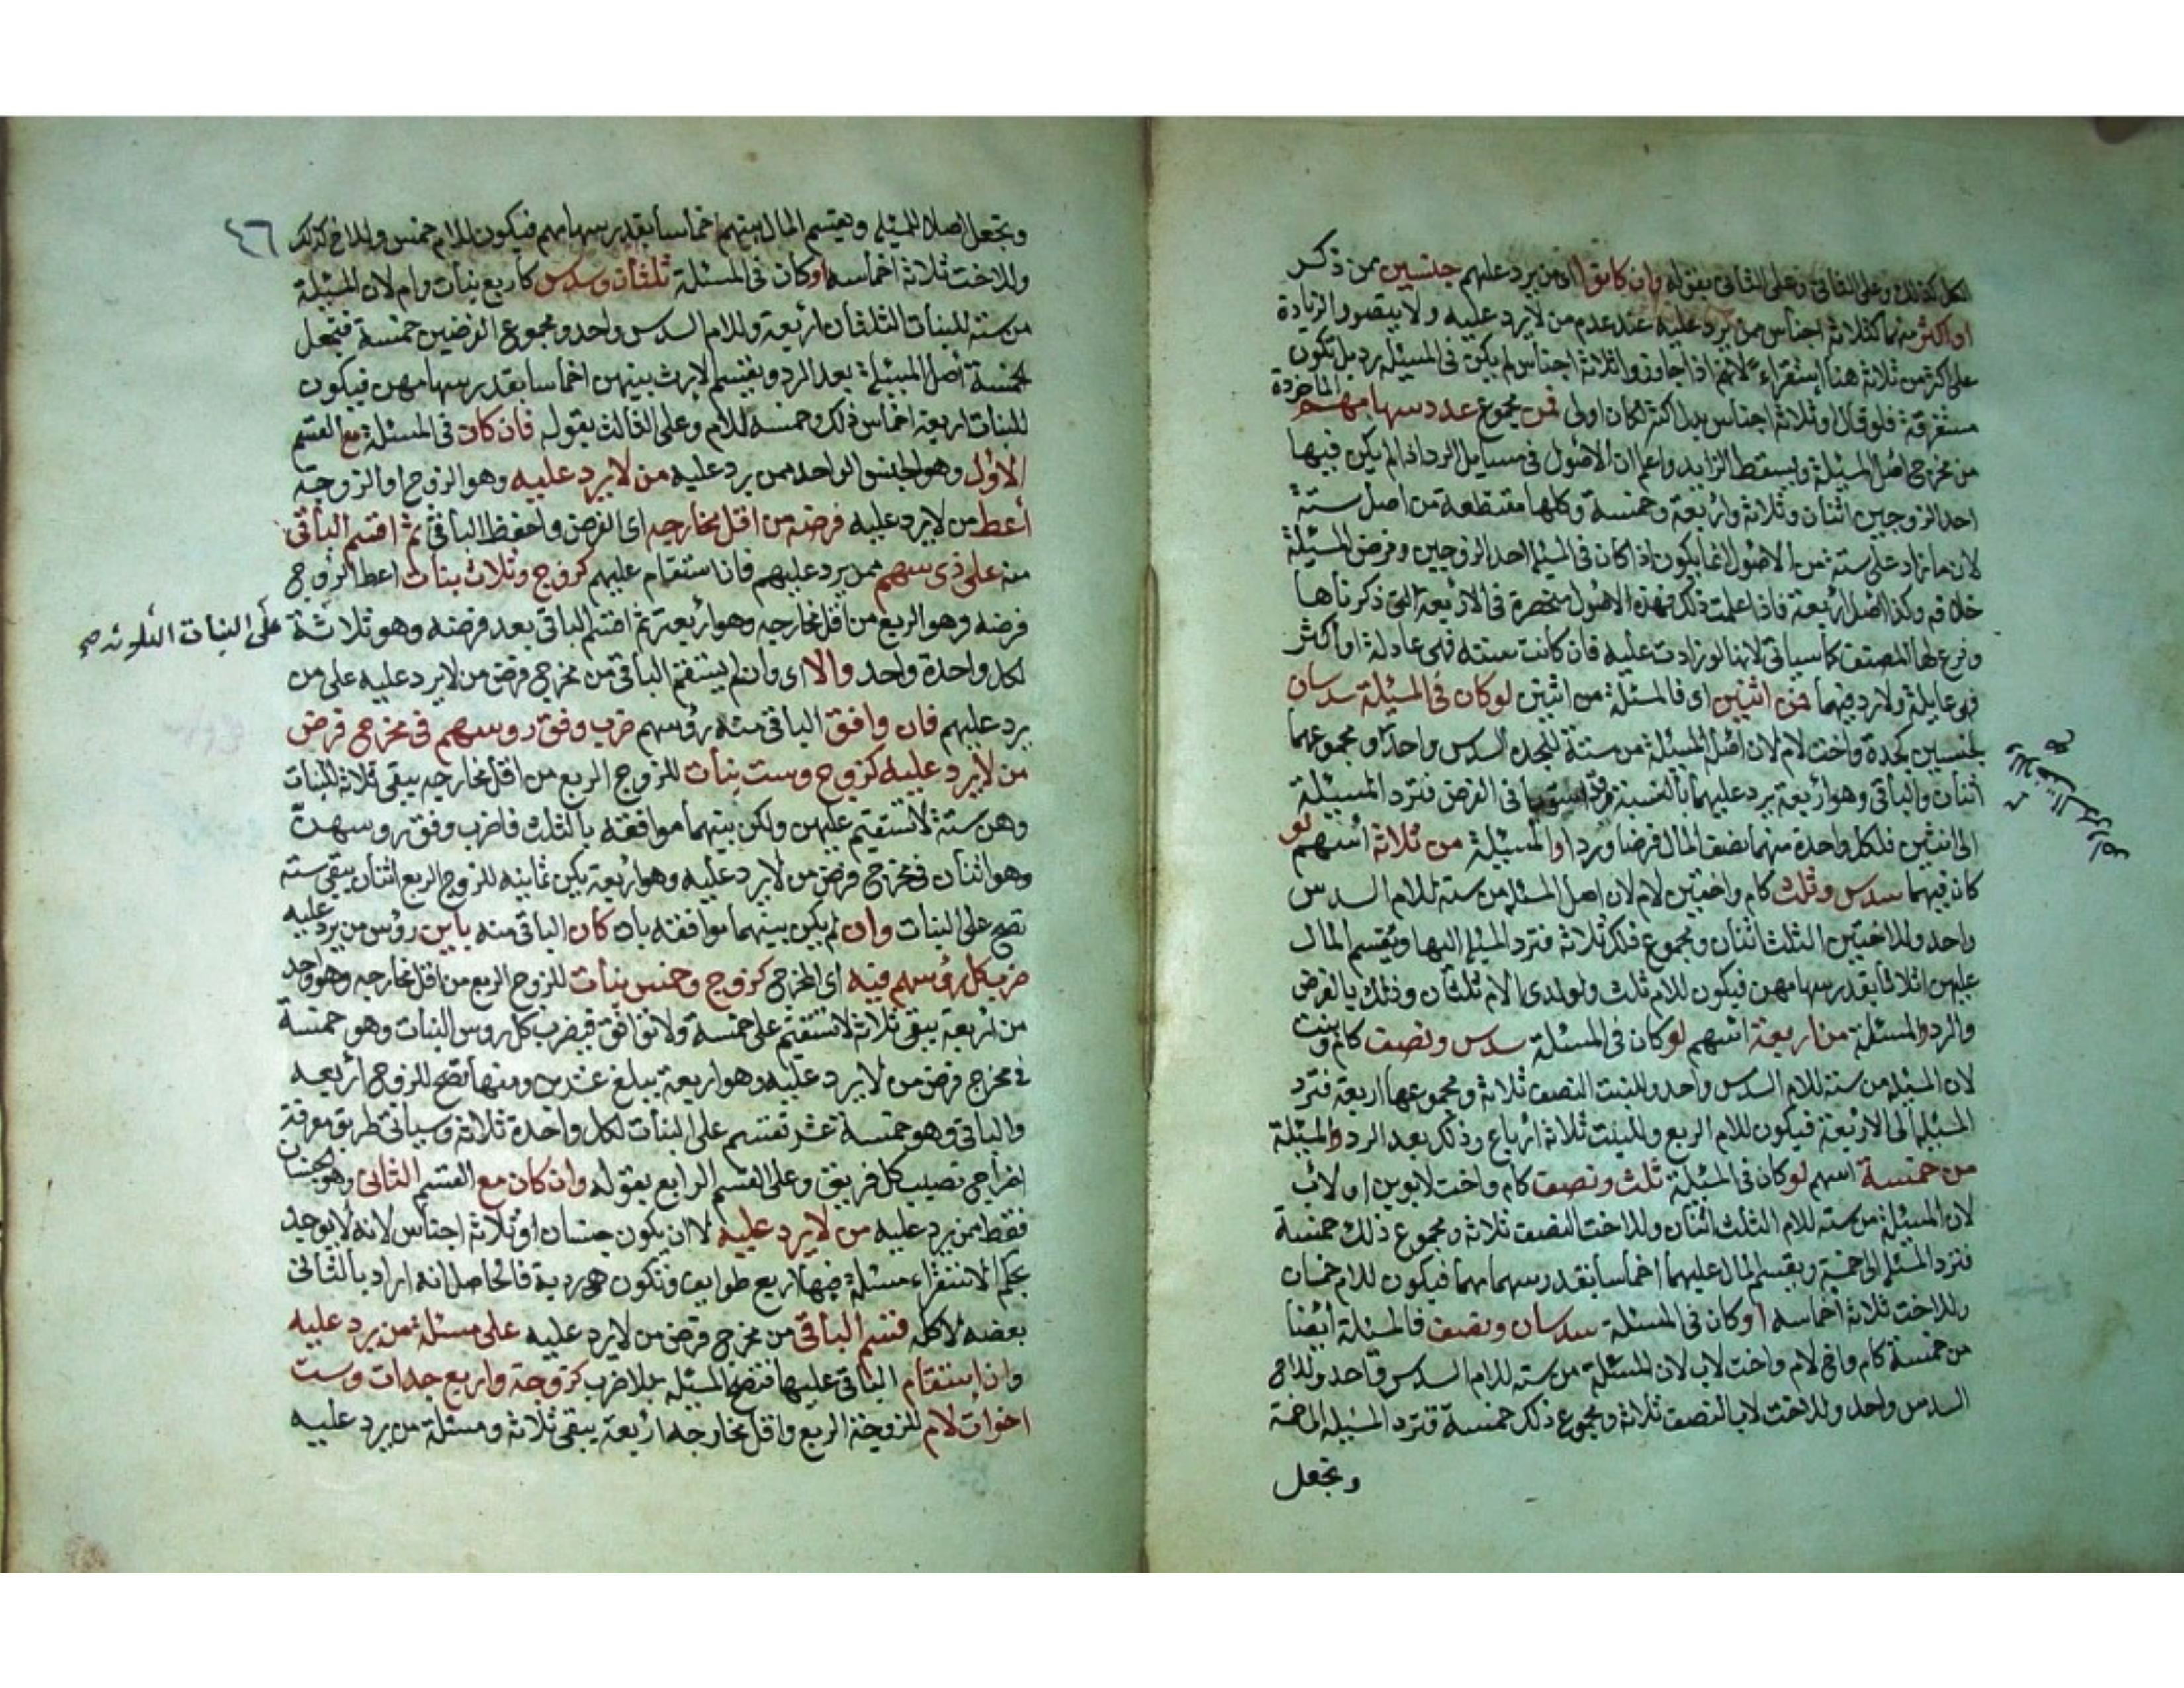 الكل كذلك وعلى الثاني وعلى الثاني بقوله وان كانوا اي من يرد عليهم جنسين ممن ذكر
او اكثر منهما كثلاثة اجناس ممن يرد عليه عند عدم من لا يرد عليه ولا يتصور الزيادة
على اكثر من ثلاثة هنا استقراء لانهم اذا جاوزوا ثلاثة اجناس لم يكن في المسئلة رد بل تكون
مستغرقة فلو قال او ثلاثة اجناس بدل اكثر لكان اولى فمن مجموع عدد سهامهم الماخوذة
من مخرج اصل المسئلة ويسقط الزايد واعلم ان الاصول في مسايل الرد اذا لم يكن فيها
احد الزوجين اثنان وثلاثة واربعة وخمسة وكلها مقتطعة من اصل ستة
لان ما زاد على ستة من الاصول انما يكون اذا كان في المسئلة احد الزوجين وفرض المسيلة
خلافه وكذا اصل اربعة فاذا علمت ذلك فهذه الاصول منحصرة في الاربعة التي ذكرناها
وفرع لها المصنف كما سياتي لانها لو زادت عليه فان كانت ستة فهي عادلة او اكثر
فهي عايلة ولا رد فيهما فمن اثنين اي فالمسئلة من اثنين لو كان في المسيلة سدسان
لجنسين كجدة واخت لام لان اصل المسيلة من ستة للجده السدس واحد و مجموعهما
اثنان والباقي وهو اربعة يرد عليهما بالنسبة في الفرض فترد المسيلة
الى اثنين فلكل واحدة منهما نصف المال فرضا وردا او المسيلة من ثلاثة اسهم لو
كان فيهما سدس وثلث كام واختين لام لان اصل المسئلة من ستة للام السدس
واحد وللاختين الثلث اثنان ومجموع ذلك ثلاثة فترد المسئلة اليها ويقسم المال
عليهن اثلاثا بقدر سهامهن فيكون للام ثلث ولولدى الام ثلثان وذلك بالفرض
والرد والمسئلة من اربعة اسهم لو كان في المسئلة سدس ونصف كام وبنت
لان المسئلة من ستة للام السدس واحد وللبنت النصف ثلاثة ومجموعها اربعة فترد
المسئلة الى الاربعة فيكون للام الربع وللبنت ثلاثة ارباع وذلك بعد الرد والمسيلة
من خمسة اسهم لو كان في المسئلة ثلث ونصف كام واخت لابوين او لاب
لان المسيلة من ستة للام الثلث اثنان وللاخت النصف ثلاثة ومجموع ذلك خمسة
فترد المسئلة الى خمسة ويقسم المال عليهما اخماسا بقدر سهامهما فيكون للام خمسان
وللاخت ثلاثة اخماسه او كان في المسئلة سدسان ونصف فالمسئلة ايضا
من خمسة كام واخ لام واخت لاب لان المسئلة من ستة للام السدس واحد وللاخ
السدس واحد وللاخت لاب النصف ثلاثة ومجموع ذلك خمسة فترد المسيلة الى خمسة
وتجعل
٤٦
وتجعل اصلا للمسئلة ويقسم المال بينهم اخماسا بقدر سهامهم فيكون للام خمس وللاخ كذلك
وللاخت ثلاثة اخماسه او كان في المسئلة ثلثان وسدس كاربع بنات وام لان المسيلة
من ستة للبنات الثلثان اربعة وللام السدس واحد ومجموع الفرضين خمسة فتجعل
الخمسة اصل المسيلة بعد الرد ويقسم الارث بينهن اخماسا بقدر سهامهن فيكون
للبنات اربعة اخماس ذلك وخمسه للام وعلى الثالث بقوله فان كان في المسئلة مع القسم
الاول وهو الجنس الواحد ممن يرد عليه من لا يرد عليه وهو الزوج او الزوجة
أعط من لا يرد عليه فرضه من اقل مخارجه اي الفرض واحفظ الباقي ثم اقسم الباقي
منه على ذي سهم ممن يرد عليهم فان استقام عليهم كزوج وثلاث بنات اعط الزوج
فرضه وهو الربع من اقل مخارجه وهو اربعة ثم اقسم الباقي بعد فرضه وهو ثلاثة على البنات الثلاثة صح
لكل واحدة واحد والا اي وان لم يستقم الباقي من مخرج فرض من لا يرد عليه على من
يرد عليهم فان وافق الباقي منه رؤسهم ضرب وفق روسهم في مخرج فرض
من لا يرد عليه كزوج وست بنات للزوج الربع من اقل مخارجه يبقى ثلاثة للبنات
وهن ستة لا تستقيم عليهن ولكن بينهما موافقة بالثلث فاضرب وفق روسهن
وهو اثنان في مخرج فرض من لا يرد عليه وهو اربعة يكن ثمانية للزوج الربع اثنان يبقى ستة
تصح على البنات وان لم يكن بينهما موافقة بان كان الباقي منه باين رؤس من يرد عليه
ضرب كل رؤسهم فيه اي المخرج كزوج وخمس بنات للزوج الربع من اقل مخارجه وهو واحد
من اربعة يبقى ثلاثة لا تستقيم على خمسة ولا توافق فيضرب كل روس البنات وهو خمسة
في مخرج فرض من لا يرد عليه وهو اربعة يبلغ عشرين ومنها تصح للزوج اربعه
والباقي وهو خمسة عشر تقسم على البنات لكل واحدة ثلاثة وسياتي طريق معرفة
اخراج نصيب كل فريق وعلى القسم الرابع بقوله وان كان مع القسم الثاني وهو جنسان
فقط ممن يرد عليه من لا يرد عليه لا ان يكون جنسان او ثلاثة اجناس لانه لا يوجد
بحكم الاستقراء مسئلة فيها اربع طوايف وتكون ردية فالحاصل انه اراد بالثاني
بعضه لا كله قسم الباقي من مخرج فرض من لا يرد عليه على مسئلة من يرد عليه
وان استقام الباقي عليها فتصح المسيلة بلا ضرب كزوجة واربع جدات وست
اخوات لام للزوجة الربع واقل مخارجه اربعة يبقى ثلاثة ومسئلة من يرد عليه